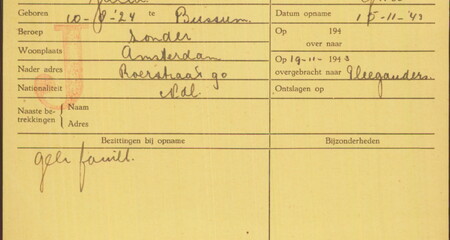 Geboren 10-8-'24 te Bussum. Datum opname 15-11-'43
Beroep zonder Op 194
Woonplaats Amsterdam over naar
Nader adres Roerstraat 90 Op 19-11-1943
Nationaliteit Ndl. overgebracht naar
Ontslagen op
Naaste be-
trekkingen Naam
Adres
Bezittingen bij opname Bijzonderheden
J